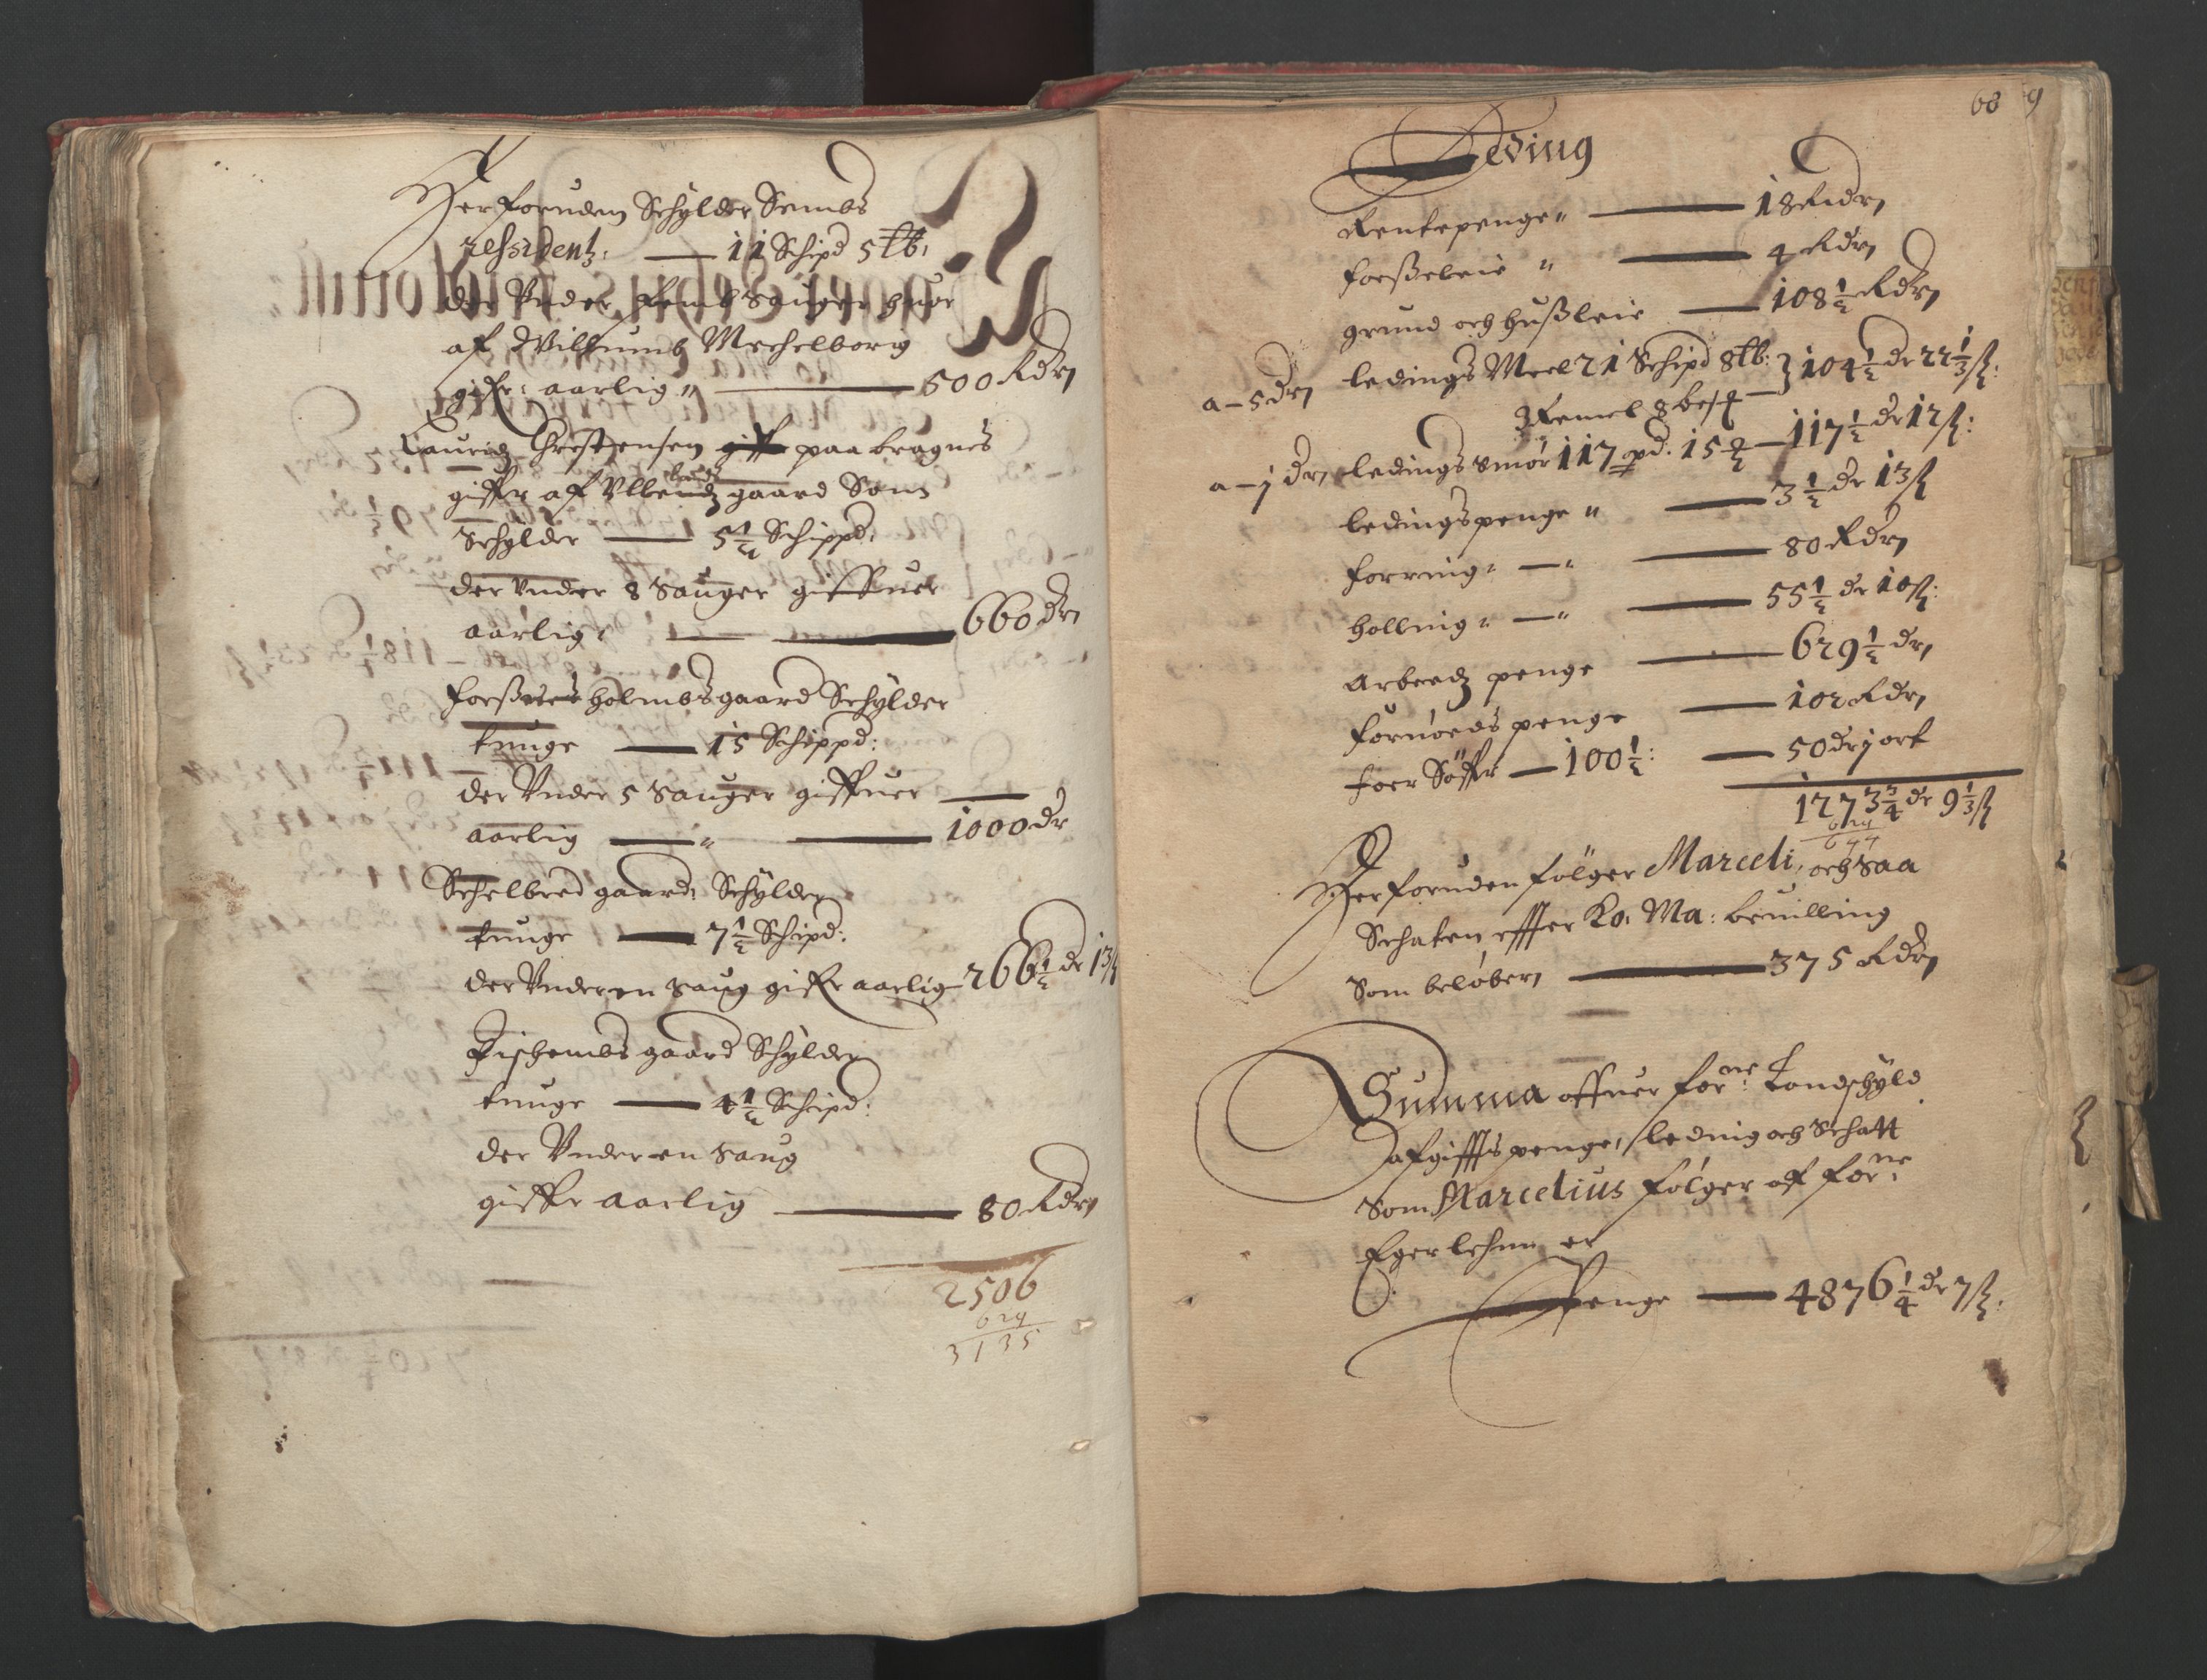 Herforuden Schylder Sembs
ressidentz: 11 Schipd 5 ℔:
der Vnder femb Sauger huor
af Wilhumb Mechelborig
gifr: aarlig 500 Rdr
Lauridz Christensen giff paa bragnes
giffr af Vlbendz gaard Som
Schylder 5½ Schippd:
der vnder 8 Sauger giffuer
aarlig 660 dr
forßnes holmbs gaard Schylder
tunge 15 Schippd:
der Vnder 5 Sauger giffuer
aarlig 1000 dr
Schelbred gaard: Schylder
tunge 7½ Schipd:
der Vnder en Saug gifr aarlig 266½ dr 13 ß
Fischembs gaard Schylder
tunge 4½ Schipd:
der Vnder en Saug
giffr aarlig 80 Rdr
2506
629
3135
68 9
Leding
Rentepenge 18 Rdr
forßeleie 4 Rdr
grund och hußleie 108½ Rdr
a – 5 dr ledings Meel 21 Schipd 8 ℔: } 104½ dr 22⅓ ß:
a – j dr ledings smør 117 pd. 15 – 117½ dr 12 ß:
ledingspenge 3½ dr 13 ß
forring 80 Rdr
holling 55½ dr 10 ß:
Arbeedz penge 629½ dr
fornøeds penge 102 Rdr
foer Söffr – 100½: 50 dr j ort
1273¾ dr 9⅓ ß
629
644
Herforuden følger Marceli, och saa
Schaten effter Ko: Ma: beuilling
Som beløber 375 Rdr
Summa offuer forne: Landschyld
afgiffts penge, leding och Schatt
Som Marcelius følger af forne:
Eger lehnn er
Penge 4876¼ dr 7 ß: